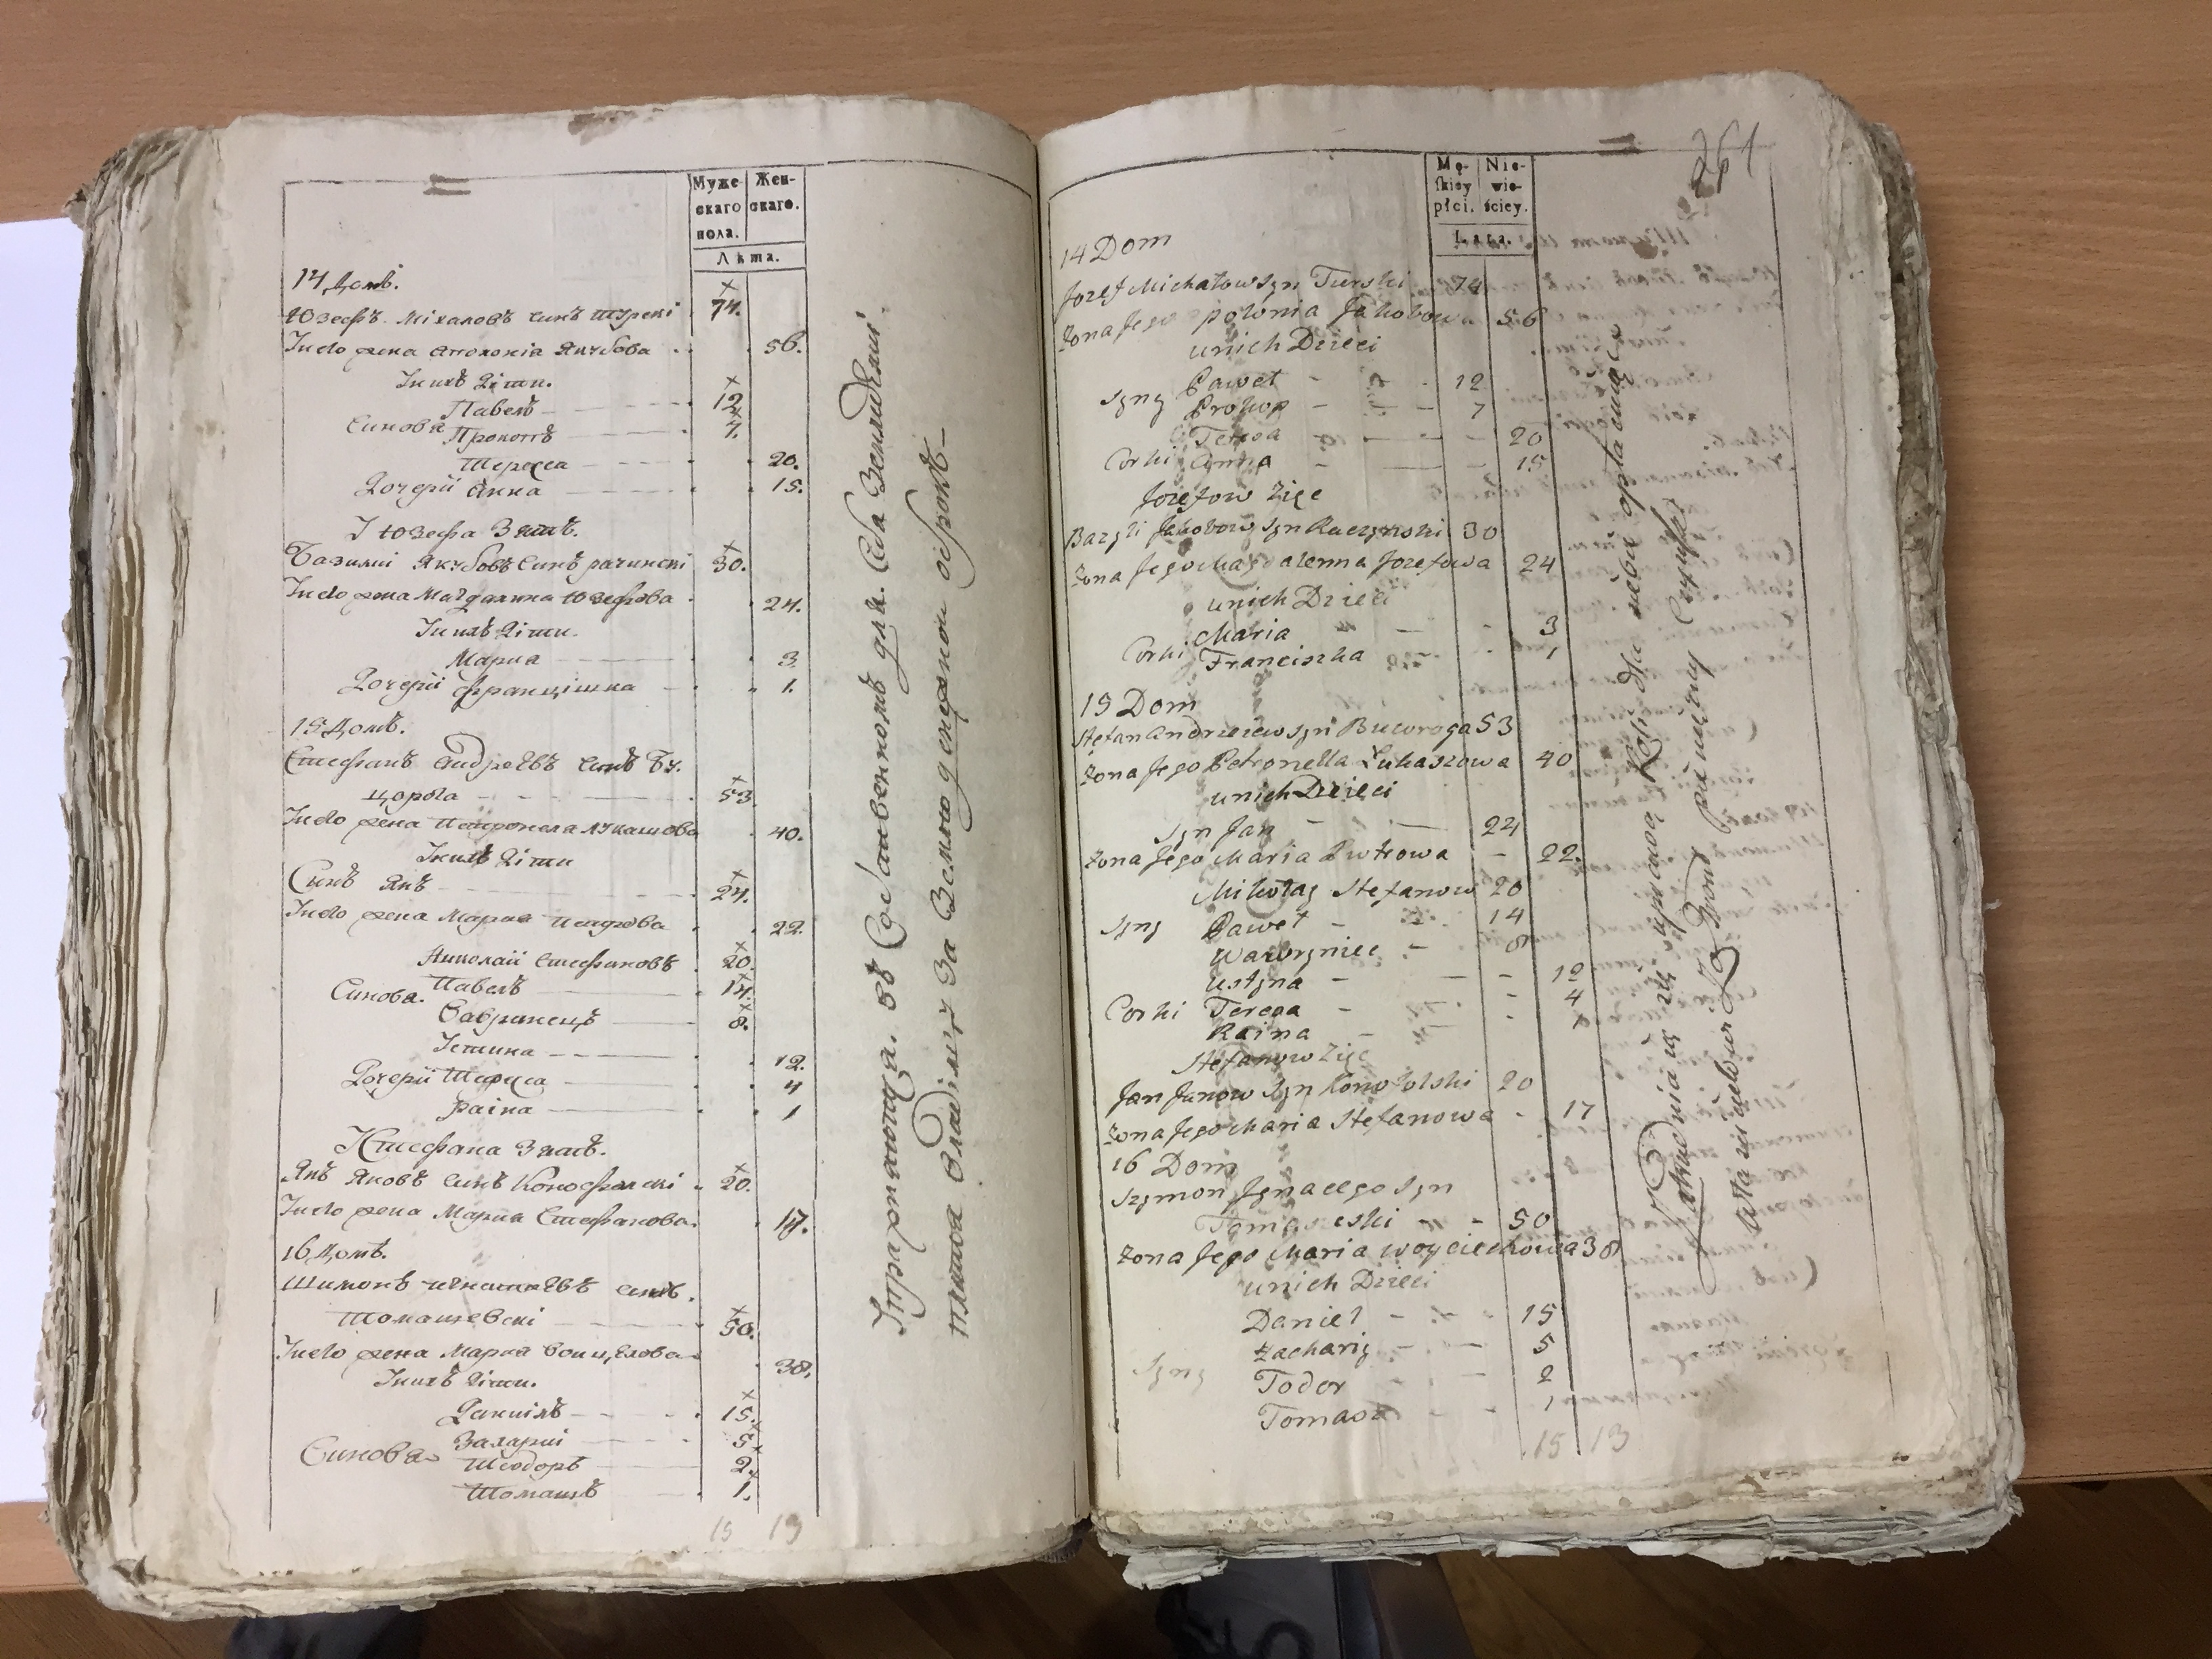 Муже-
скаго
пола.
Жен-
скаго.
Лѣта.
14 Домъ.
Юзефъ Міхаловъ Синъ Турскі 74.
Іиво жена Аполонія Якубова 56.
Інихъ Діти.
Павелъ 12
Синова Прокопъ 7.
Тереса 20.
Дочерїи Анна 15.
І Юзефа Зять.
Базилиі Якубовъ Синъ рачинскі 30.
Іиво жена Магдалина Юзефова 24.
Інихъ Діти.
Мариа 3
Дочерїи францішка 1.
15 Домъ.
Стефанъ Андреѣвъ Синъ Бу-
царога 53
Іиво жена Петронела Лукашова 40.
Інихъ Діти
Синъ Янъ 24.
Іиво жена Мариа Петрова 22.
Николаїи Стефановъ 20.
Синова. Павелъ 14.
Вавринецъ 8.
Устина 12.
Дочерїи Тереса 4
раіна 1
И Стефана Зять.
Янъ Яновъ Синъ Конофолскі 20.
Іиво жена Мариа Стефанова. 17.
16 Домъ.
Шимонъ Игнатѣвъ Синъ.
Томашевскі 50.
Іиво жена Мариа 38.
Інихъ Діти.
Даниілъ 15.
Захариі 5
Синова Теодоръ 2.
Томашъ 1.
15 13
за Землю
361
Mę-
skiey
płci.
Nie-
wie-
ściey.
Lata.
14 Dom
Jozef Michałow Syn Turski 74
Zona Jego polonia Jakobow 56
unich Dzieci
Paweł 12
Syny Prokop 7
Teresa 20
Corki Anna 15
Jozefow Zięc
Bazyli Jakobow Syn Raczynski 30
Zona Jego Magdalenna Jozefowa 24
unich Dzieci
Maria 3
Corki Franciszka 1
15 Dom
Stefan Andrzeiew Syn Bucoroga 53
Zona Jego Petronella Łukaszowa 40
unich Dzieci
Syn Jan 24
Zona Jego Maria Piotrowa 22.
Mikołay Stefanow 20
Syny Paweł 14
Wawrzyniec 8
Ustyna 12
Corki Teresa 4
Raina 1
Stefanow Zięc
Jan Janow Syn Konofolski 20
Zona Jego Maria Stefanowa 17
16 Dom
Szymon Ignacego Syn
Tomaszeski 50
Zona Jego Maria Woyciechowa 38
unich Dzieci
Daniel 15
Zachariy 5
Syny Todor 2
Tomasz 1
15 13